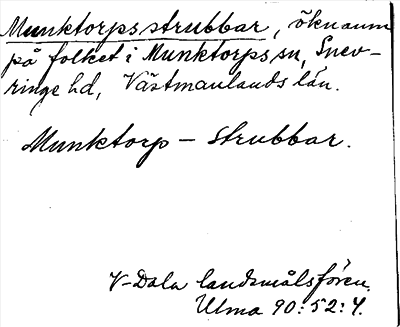 Munktorpsstrubbar, öknamn
på folket i Munktorps sn, Snev-
ringe hd, Västmanlands län.
Munktorp – strubbar.
V-Dala landsmålsfören.
Ulma 90:52:4.